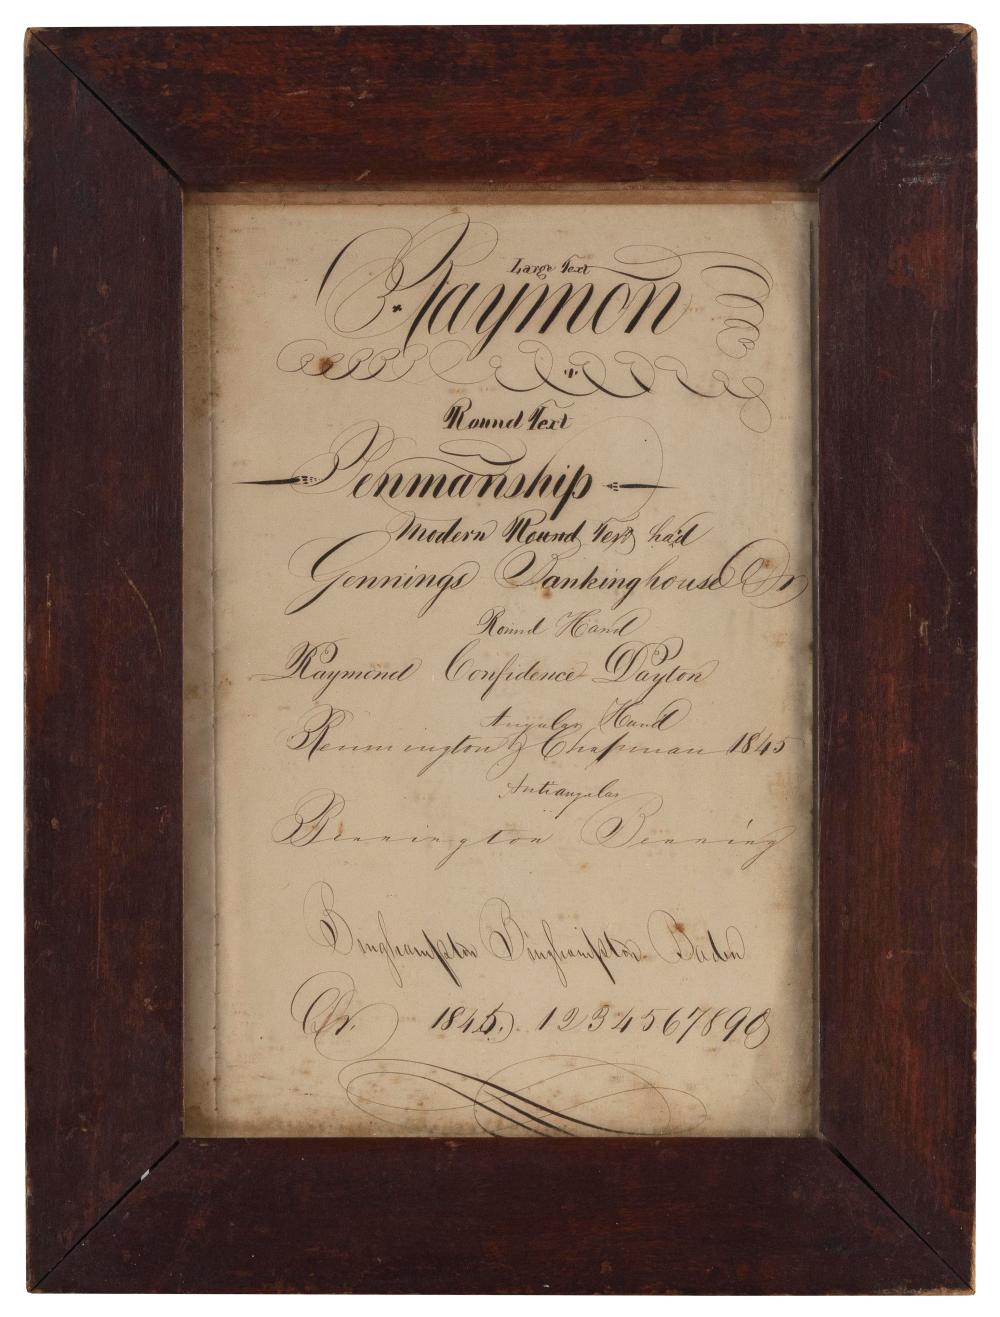 Large Text
Raymon
Round Text
Penmanship
Modern Round Text had
Gennings Bankinghouse Dr
Round Hand
Raymond Confidence Dayton
Angular Hand
Remmington & Chapman 1845
Antiangular
Bennington Benning
Binghampton Binghampton Baden
Dr. 1845. 1234567890